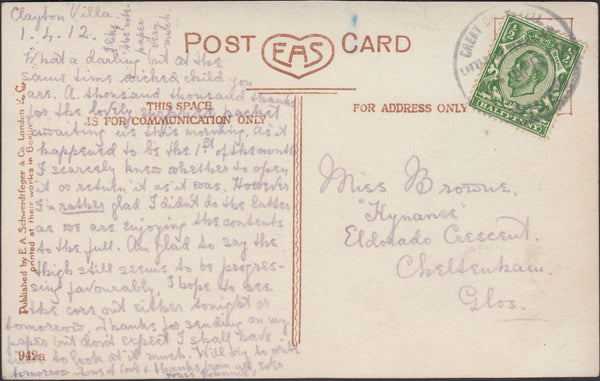 Clayton Villa
1.4.12.
I like
the note
paper
very
much.
What a darling but at the
same time wicked child you
are. A thousand thousand thanks
for the lovely surprise packet
waiting us this morning. As it
happened to be the 1st of the month
I scarcely knew whether to open
it or return it as it was. However
I'm rather glad I didn't do the latter
as we are enjoying the contents
to the full. Am glad to say the
thigh still seems to be progres-
sing favourably, I hope to see
the core out either tonight or
tomorrow. Thanks for sending on my
paper but don't expect I shall have
time to look at it much. Will try to write
tomorrow. Tons of love & thanks from all, ever
POST EAS CARD
THIS SPACE
IS FOR COMMUNICATION ONLY
FOR ADDRESS ONLY
Published by E. A. Schwerdtfeger & Co. London E.C.
printed at their works in Berlin
942a
GREAT
1/2 D 1/2
HALFPENNY
Miss Browne,
"Kynance"
Eldorado Crescent.
Cheltenham.
Glos.